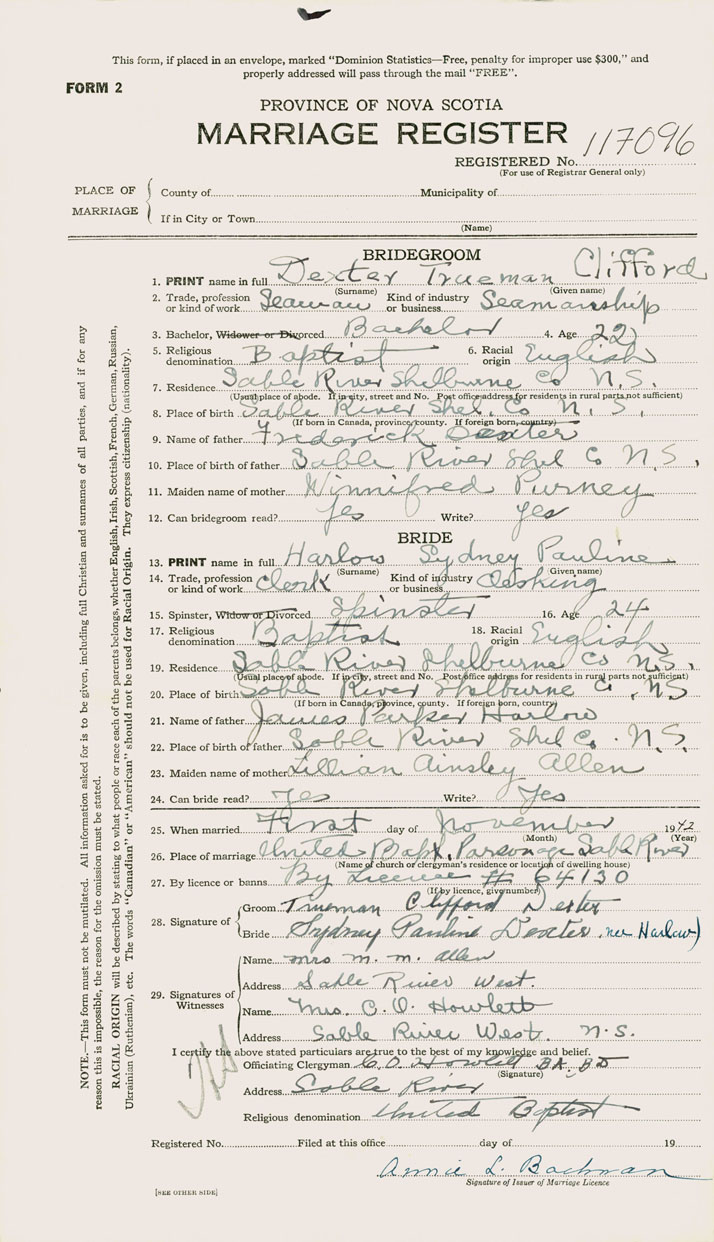 This form, if placed in an envelope, marked "Dominion Statistics—Free, penalty for improper use $300," and
properly addressed will pass through the mail "FREE".
FORM 2
PROVINCE OF NOVA SCOTIA
MARRIAGE REGISTER
REGISTERED No. 117096
(For use of Registrar General only)
PLACE OF MARRIAGE
County of Municipality of
If in City or Town
(Name)
BRIDEGROOM
1. PRINT name in full Dexter Trueman Clifford
(Surname) (Given name)
2. Trade, profession or kind of work Seaman Kind of industry or business Seamanship
3. Bachelor, Widower or Divorced Bachelor 4. Age 22
5. Religious denomination Baptist 6. Racial origin English
7. Residence Sable River Shelburne Co N.S.
(Usual place of abode. If in city, street and No. Post office address for residents in rural parts not sufficient)
8. Place of birth Sable River Shel. Co N. S.
(If born in Canada, province, county. If foreign born, country)
9. Name of father Frederick Dexter
10. Place of birth of father Sable River Shel Co N.S.
11. Maiden name of mother Winnifred Purney
12. Can bridegroom read? Yes Write? Yes
BRIDE
13. PRINT name in full Harlow Sydney Pauline
(Surname) (Given name)
14. Trade, profession or kind of work Clerk Kind of industry or business Clerking
15. Spinster, Widow or Divorced Spinster 16. Age 24
17. Religious denomination Baptist 18. Racial origin English
19. Residence Sable River Shelburne Co N.S.
(Usual place of abode. If in city, street and No. Post office address for residents in rural parts not sufficient)
20. Place of birth Sable River Shelburne Co. NS
(If born in Canada, province, county. If foreign born, country)
21. Name of father James Parker Harlow
22. Place of birth of father Sable River Shel Co. N.S.
23. Maiden name of mother Lillian Ainsley Allen
24. Can bride read? Yes Write? Yes
25. When married First day of November 1942
(Month) (Year)
26. Place of marriage United Bapt. Parsonage Sable River
(Name of church or clergyman's residence or location of dwelling house)
27. By licence or banns By Licence # 64130
(If by licence, give number)
28. Signature of
Groom Trueman Clifford Dexter
Bride Sydney Pauline Dexter nee Harlow)
29. Signatures of Witnesses
Name Mrs M. M. Allen
Address Sable River West.
Name Mrs. C. O. Howlett
Address Sable River West. N.S.
I certify the above stated particulars are true to the best of my knowledge and belief.
Officiating Clergyman C. O. Howlett BA, BD
(Signature)
Address Sable River
Religious denomination United Baptist
Registered No. Filed at this office day of 19
Annie L. Bachman
Signature of Issuer of Marriage Licence
[SEE OTHER SIDE]
NOTE.—This form must not be mutilated. All information asked for is to be given, including full Christian and surnames of all parties, and if for any
reason this is impossible, the reason for the omission must be stated.
RACIAL ORIGIN will be described by stating to what people or race each of the parents belongs, whether English, Irish, Scottish, French, German, Russian,
Ukrainian (Ruthenian), etc. The words "Canadian" or "American" should not be used for Racial Origin. They express citizenship (nationality).